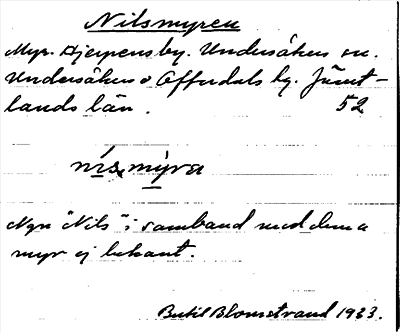 Nilsmyren
Myr. Hjerpens by. Undersåkers sn.
Undersåkers o Offerdals tg. Jämt-
lands län. 52
nis, mýra
Nyn "Nils" i samband med denna
myr ej bekant.
Bertil Blomstrand 1933.